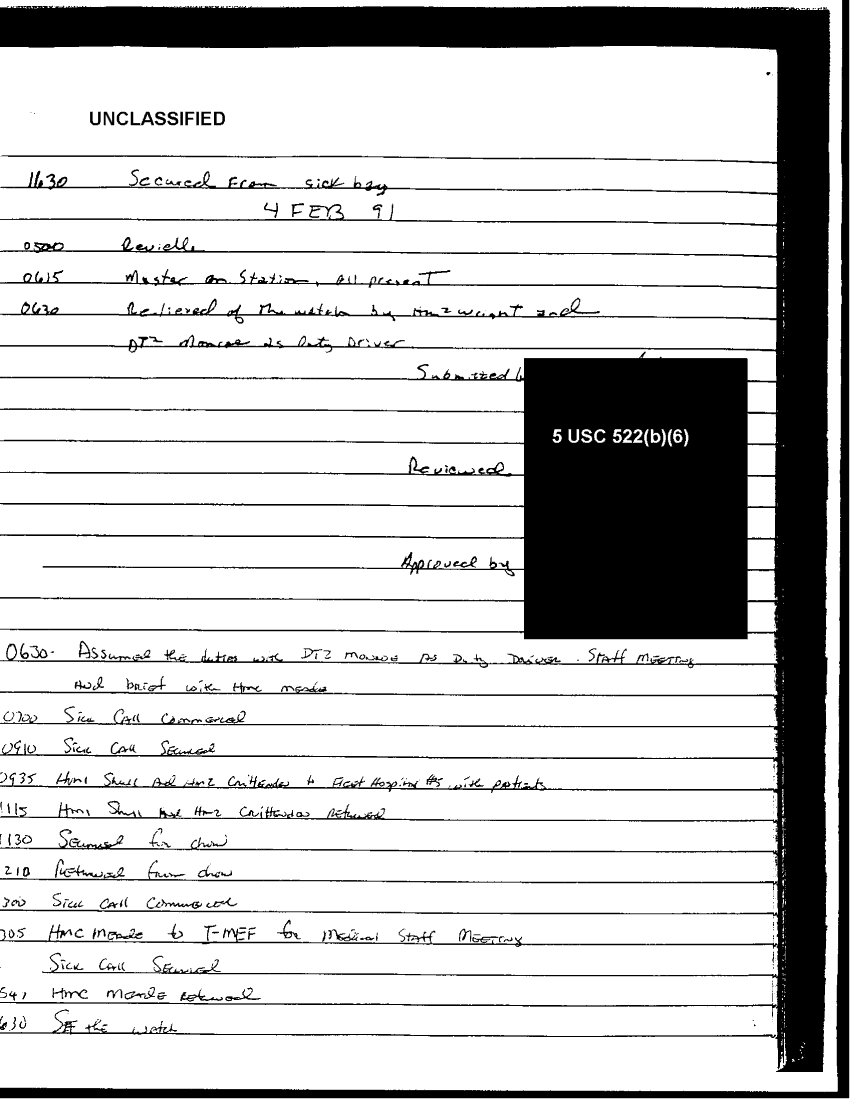 UNCLASSIFIED
1630 Secured From sick bay
4 FEB 91
0500
0615 Muster on Station, all present
0630 Relieved of the watch by Hm2 and
DT2 Monroe as Duty Driver
Submitted
5 USC 522(b)(6)
Reviewed
Approved by
0630- Assumed the duties with DT2 Monroe As Duty Driver. Staff Meeting
And brief with Hmc Meade
0700 Sick Call Commenced
0910 Sick Call Secured
0935 Hm1 Shull And Hm2 Crittendon to Fleet Hospital #5 with patients
1115 Hm1 Shull And Hm2 Crittendon Returned
1130 Secured for chow
210 Returned from chow
300 Sick Call Commenced
305 Hmc Meade to I-MEF for Medical Staff Meeting
Sick Call Secured
Hmc Meade returned
630 Set the watch